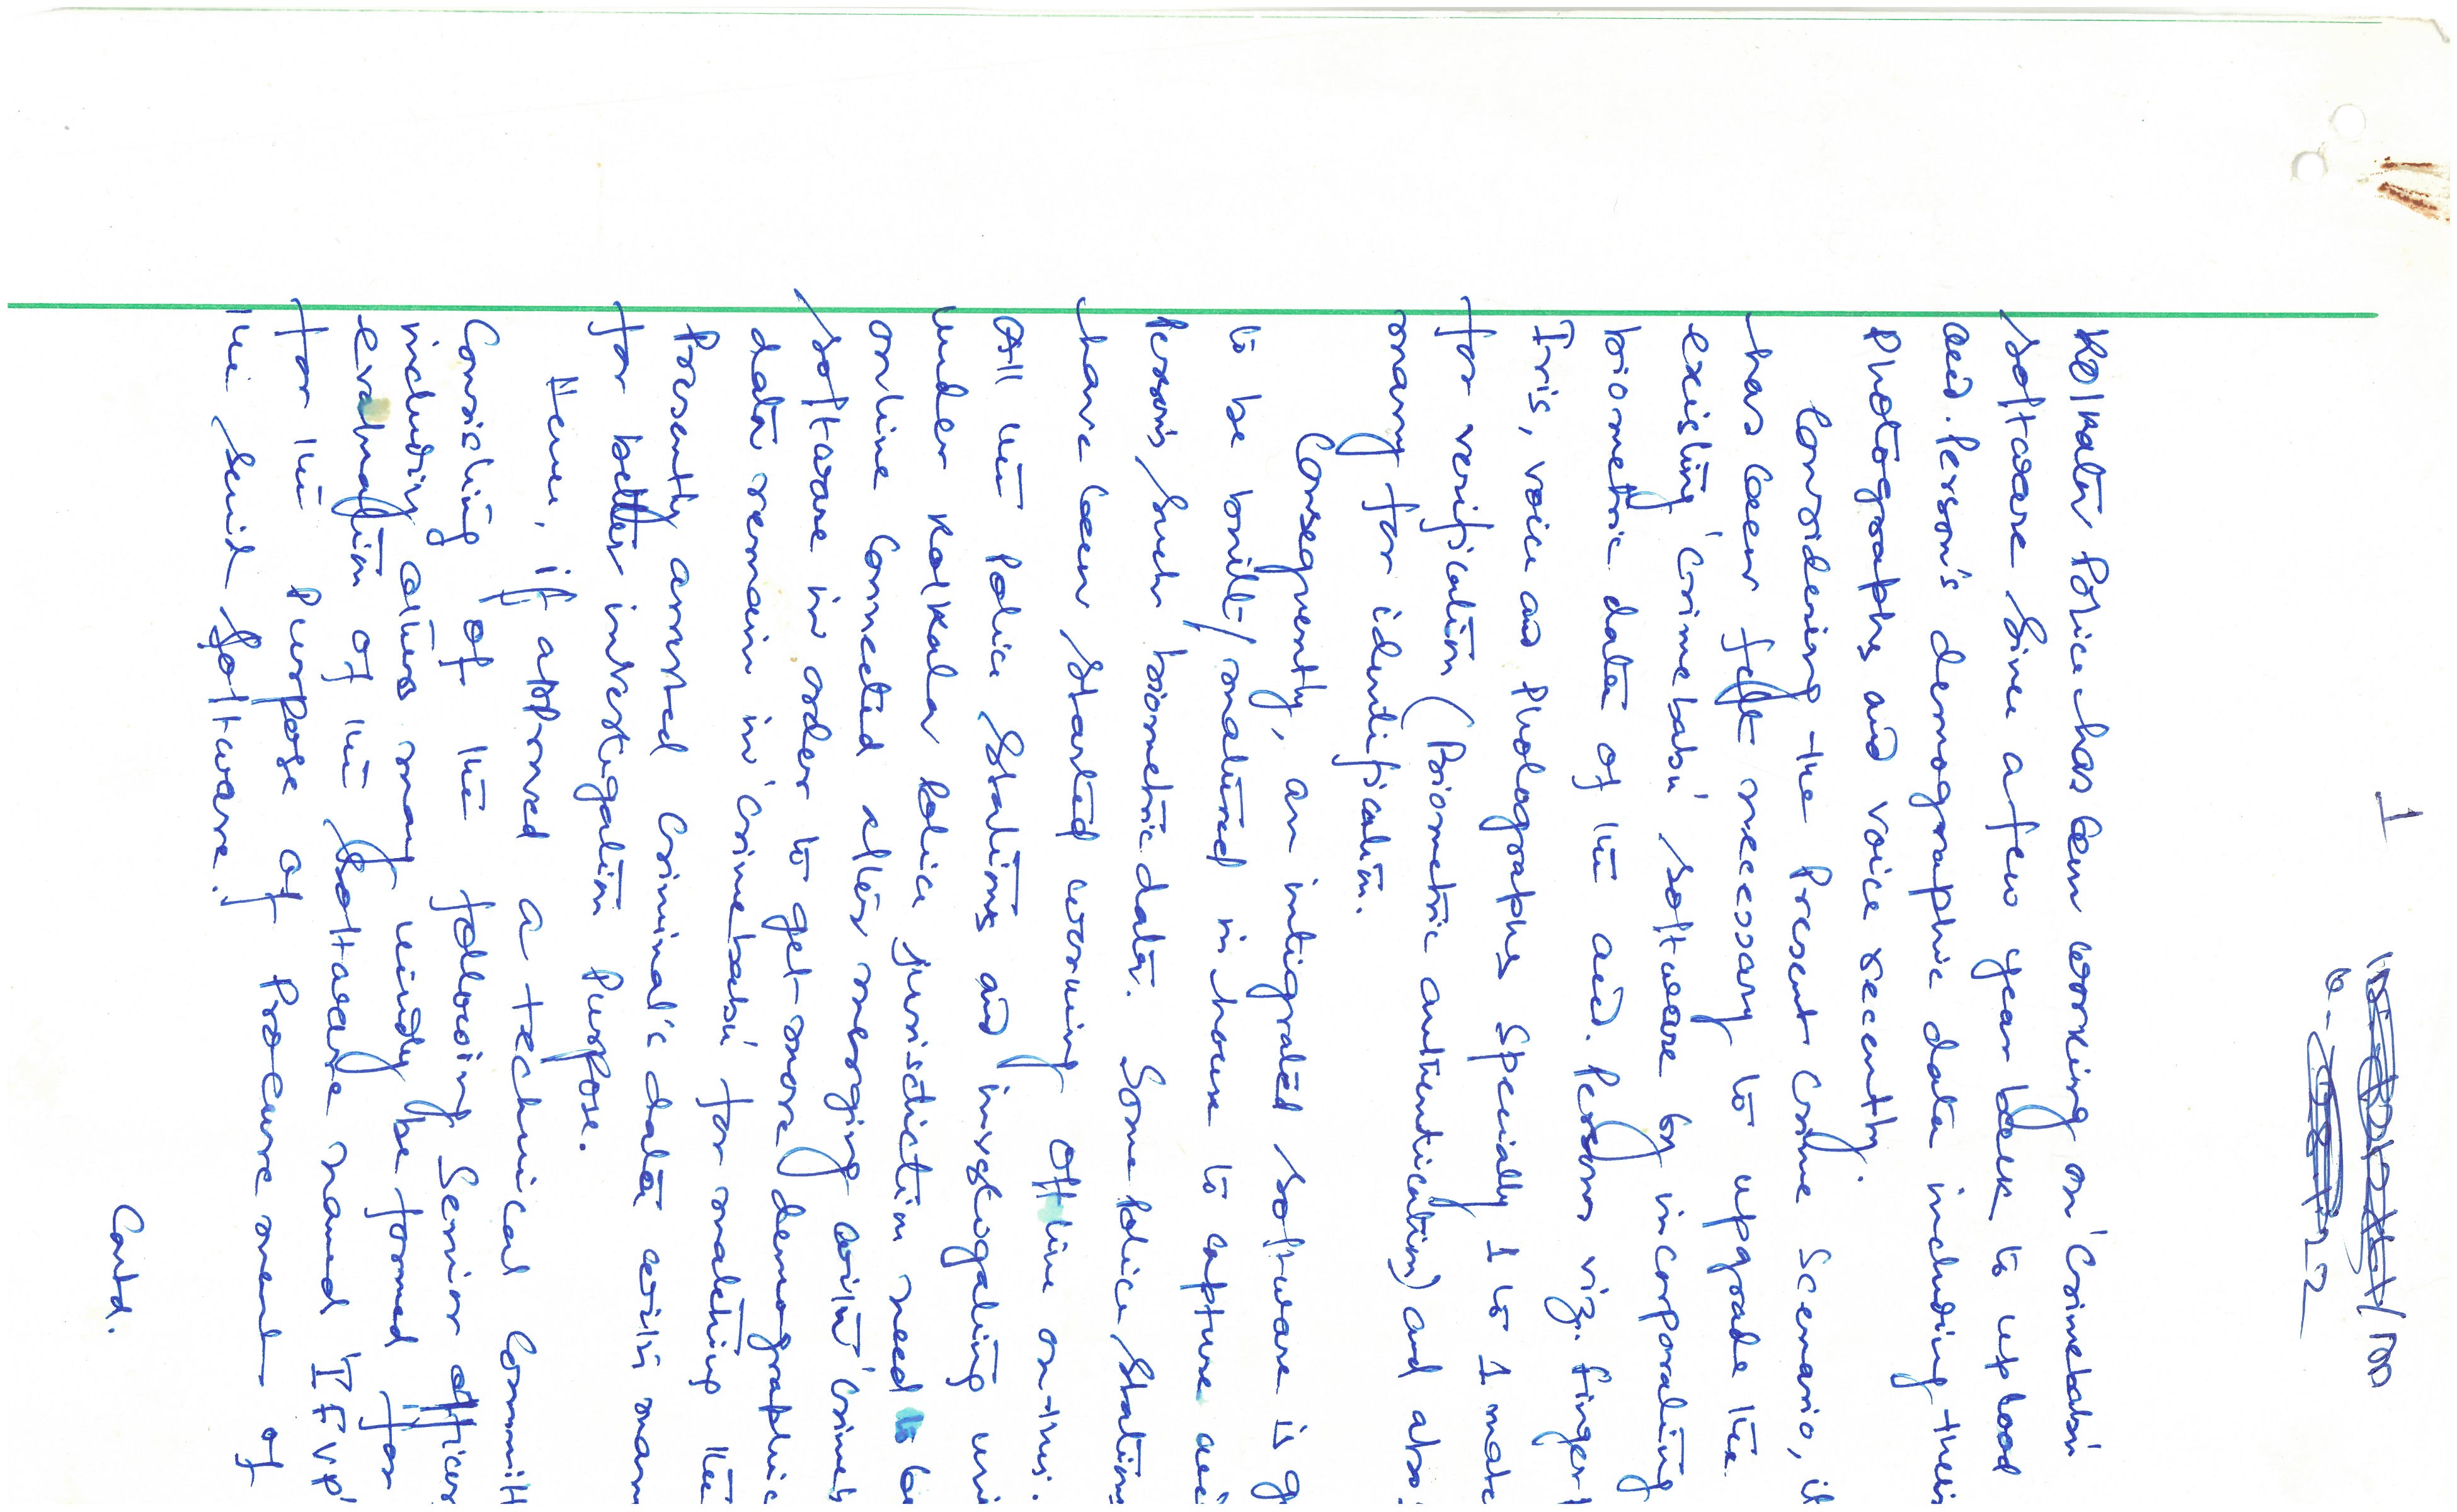 1
/DD
22
Kolkata Police has been working on 'Crimebabu'
software Since a few year back to upload
accd. Person's demographic data including their
Photographs and voice recently.
Considering the Present Crime Scenario, it
has been felt necessary to upgrade the
existing 'Crimebabu' software by incorporating
biometric data of the accd. Persons viz. finger
Iris, voice and Photographs Specially 1 to 1 matc
for verification (Biometric authentication) and also
many for identification.
Consequently, an intigrated software is g
to be built/matured in house to capture acc
Person's Such biometric data. Some Police Stations
have been started working offline on this.
All the Police Stations and invstogating uni
under Kolkata Police jurisdiction need to be
online Connected after merging with 'Crimeb
software in order to get more demographic
data remain in 'Crimebabu' for matching the
Presently arrested Criminal's data with man
for better investigation Purpose.
Hence, if approved a technical Committ
Consisting of the following Senior officers
including others may kindly be formed for
evaluation of the Software named 'IFVP'
for the Purpose of Procurement of
the Said Software.
Contd.